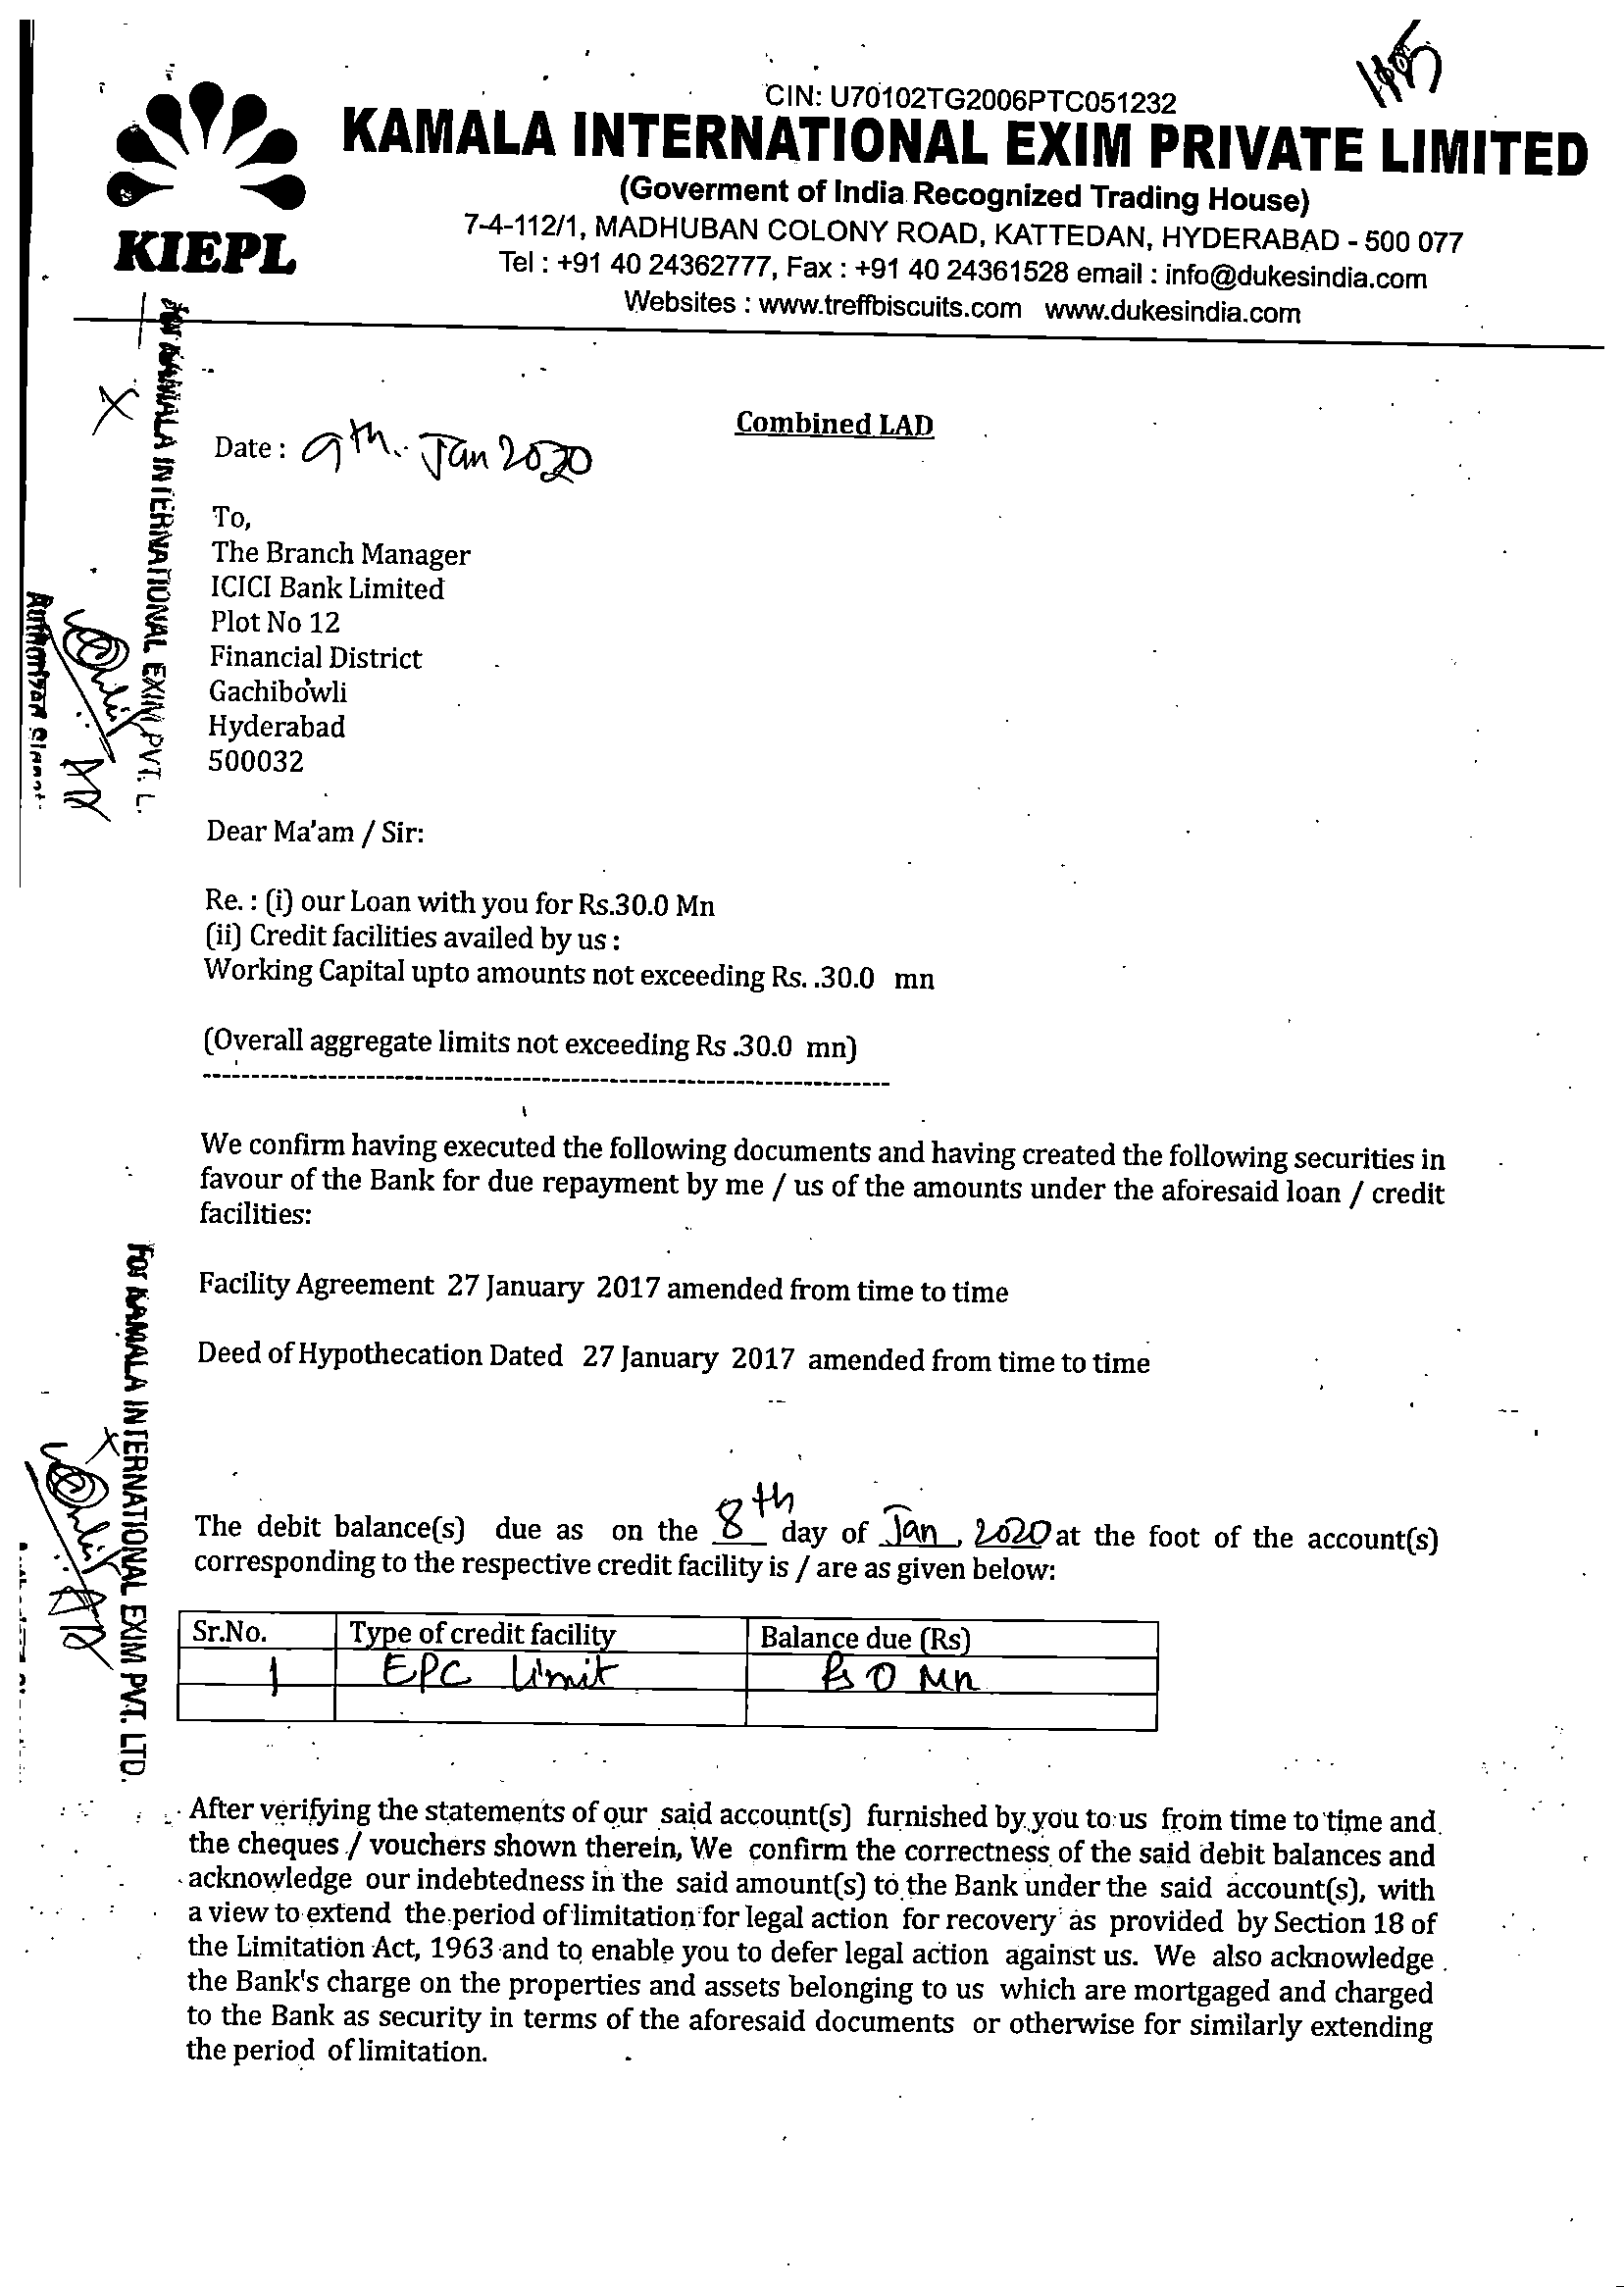 CIN: U70102TG2006PTC051232
KAMALA INTERNATIONAL EXIM PRIVATE LIMITED
(Goverment of India Recognized Trading House)
7-4-112/1, MADHUBAN COLONY ROAD, KATTEDAN, HYDERABAD - 500 077
Tel : +91 40 24362777, Fax : +91 40 24361528 email : info@dukesindia.com
Websites : www.treffbiscuits.com www.dukesindia.com
KIEPL
Combined LAD
Date : 9th Jan 2020
To,
The Branch Manager
ICICI Bank Limited
Plot No 12
Financial District
Gachibowli
Hyderabad
500032
Dear Ma'am / Sir:
Re. : (i) our Loan with you for Rs.30.0 Mn
(ii) Credit facilities availed by us :
Working Capital upto amounts not exceeding Rs. .30.0 mn
(Overall aggregate limits not exceeding Rs .30.0 mn)
We confirm having executed the following documents and having created the following securities in
favour of the Bank for due repayment by me / us of the amounts under the aforesaid loan / credit
facilities:
Facility Agreement 27 January 2017 amended from time to time
Deed of Hypothecation Dated 27 January 2017 amended from time to time
The debit balance(s) due as on the 8th day of Jan, 2020 at the foot of the account(s)
corresponding to the respective credit facility is / are as given below:
Sr.No. Type of credit facility Balance due (Rs)
1 EPC Limit Rs 0 Mn
After verifying the statements of our said account(s) furnished by you to us from time to time and
the cheques / vouchers shown therein, We confirm the correctness of the said debit balances and
acknowledge our indebtedness in the said amount(s) to the Bank under the said account(s), with
a view to extend the period of limitation for legal action for recovery as provided by Section 18 of
the Limitation Act, 1963 and to enable you to defer legal action against us. We also acknowledge
the Bank's charge on the properties and assets belonging to us which are mortgaged and charged
to the Bank as security in terms of the aforesaid documents or otherwise for similarly extending
the period of limitation.
For KAMALA INTERNATIONAL EXIM PVT. L
For KAMALA INTERNATIONAL EXIM PVT. LTD.